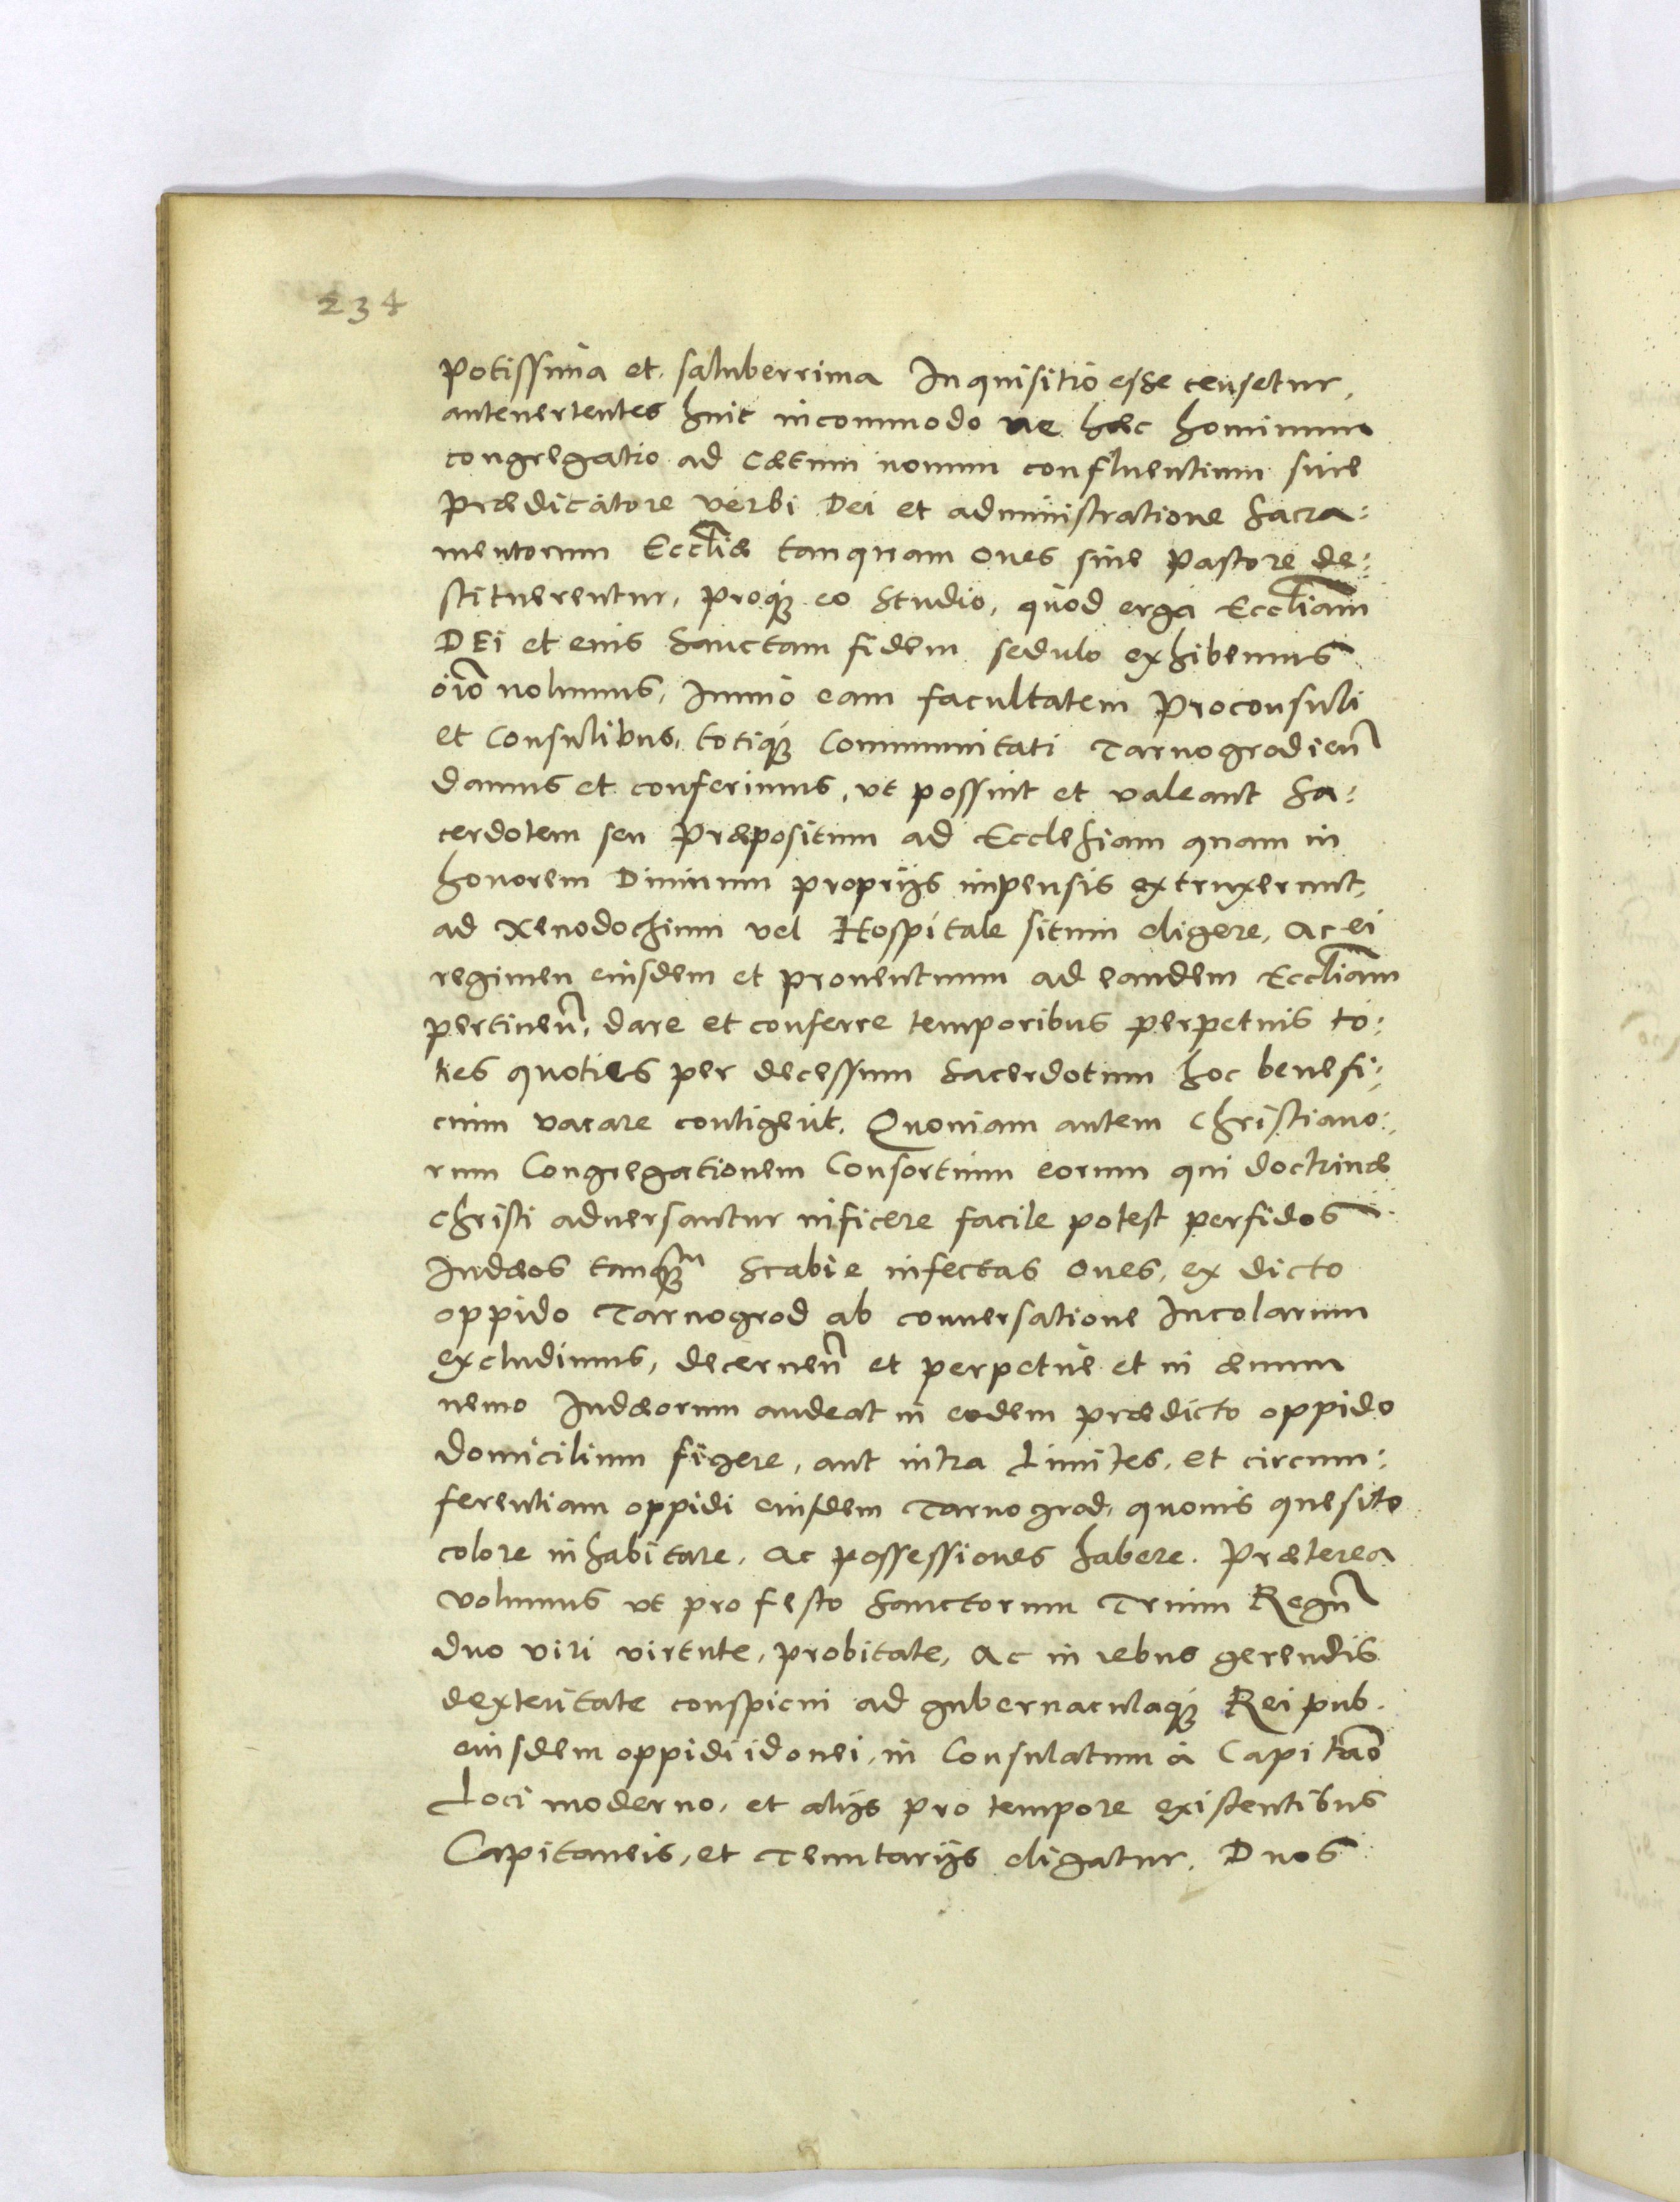 234
potissima et saluberrima Inquisitio esse censetur,
anteuertentes huic incommodo ne hæc hominum
congregatio ad cætum nouum confluentium sine
Prædicatore verbi Dei et administratione Sacra:
mentorum Eccliæ tanquam oues sine Pastore de:
stituerentur, proq́ue eo studio, quod erga Eccliam
DEi et eius Sanctam fidem sedulo exhibemus
oio nolumus, Immo eam facultatem Proconsuli
et Consulibus, totiq́ue Communitati Tarnogrodien̄
damus et conferimus, ut possint et valeant Sa:
cerdotem seu Præpositum ad Ecclesiam quam in
honorem Diuinum proprijs impensis extruxerunt,
ad Xenodochium vel Hospitale situm eligere, Ac ei
regimen eiusdem et prouentuum ad eandem Eccliam
pertinen̄, dare et conferre temporibus perpetuis to:
ties quoties per decessum Sacerdotum hoc benefi:
cium vacare contigerit. Quoniam autem Christiano:
rum Congregationem Consortium eorum qui doctrinæ
Christi aduersantur inficere facile potest perfidos
Iudæos tanq̃m Scabie infectas Oues, ex dicto
oppido Tarnogrod ab conuersatione Incolarum
excludimus, decernen̄ et perpetue et in æuum
nemo Iudæorum audeat in eodem prædicto oppido
domicilium figere, aut intra Limites, et circum:
ferentiam oppidi eiusdem Tarnogrod, quouis quesito
colore inhabitare, Ac possessiones habere. Præterea
volumus ut pro festo Sanctorum Trium Regn̄
duo viri virtute, probitate, Ac in rebus gerendis
dexteritate conspicui ad gubernaculaq́ue Rei pub.
eiusdem oppidi idonei, in Consulatum à Capitao
Loci moderno, et alijs pro tempore existentibus
Capitaneis, et Tenutarijs eligatur, Duos